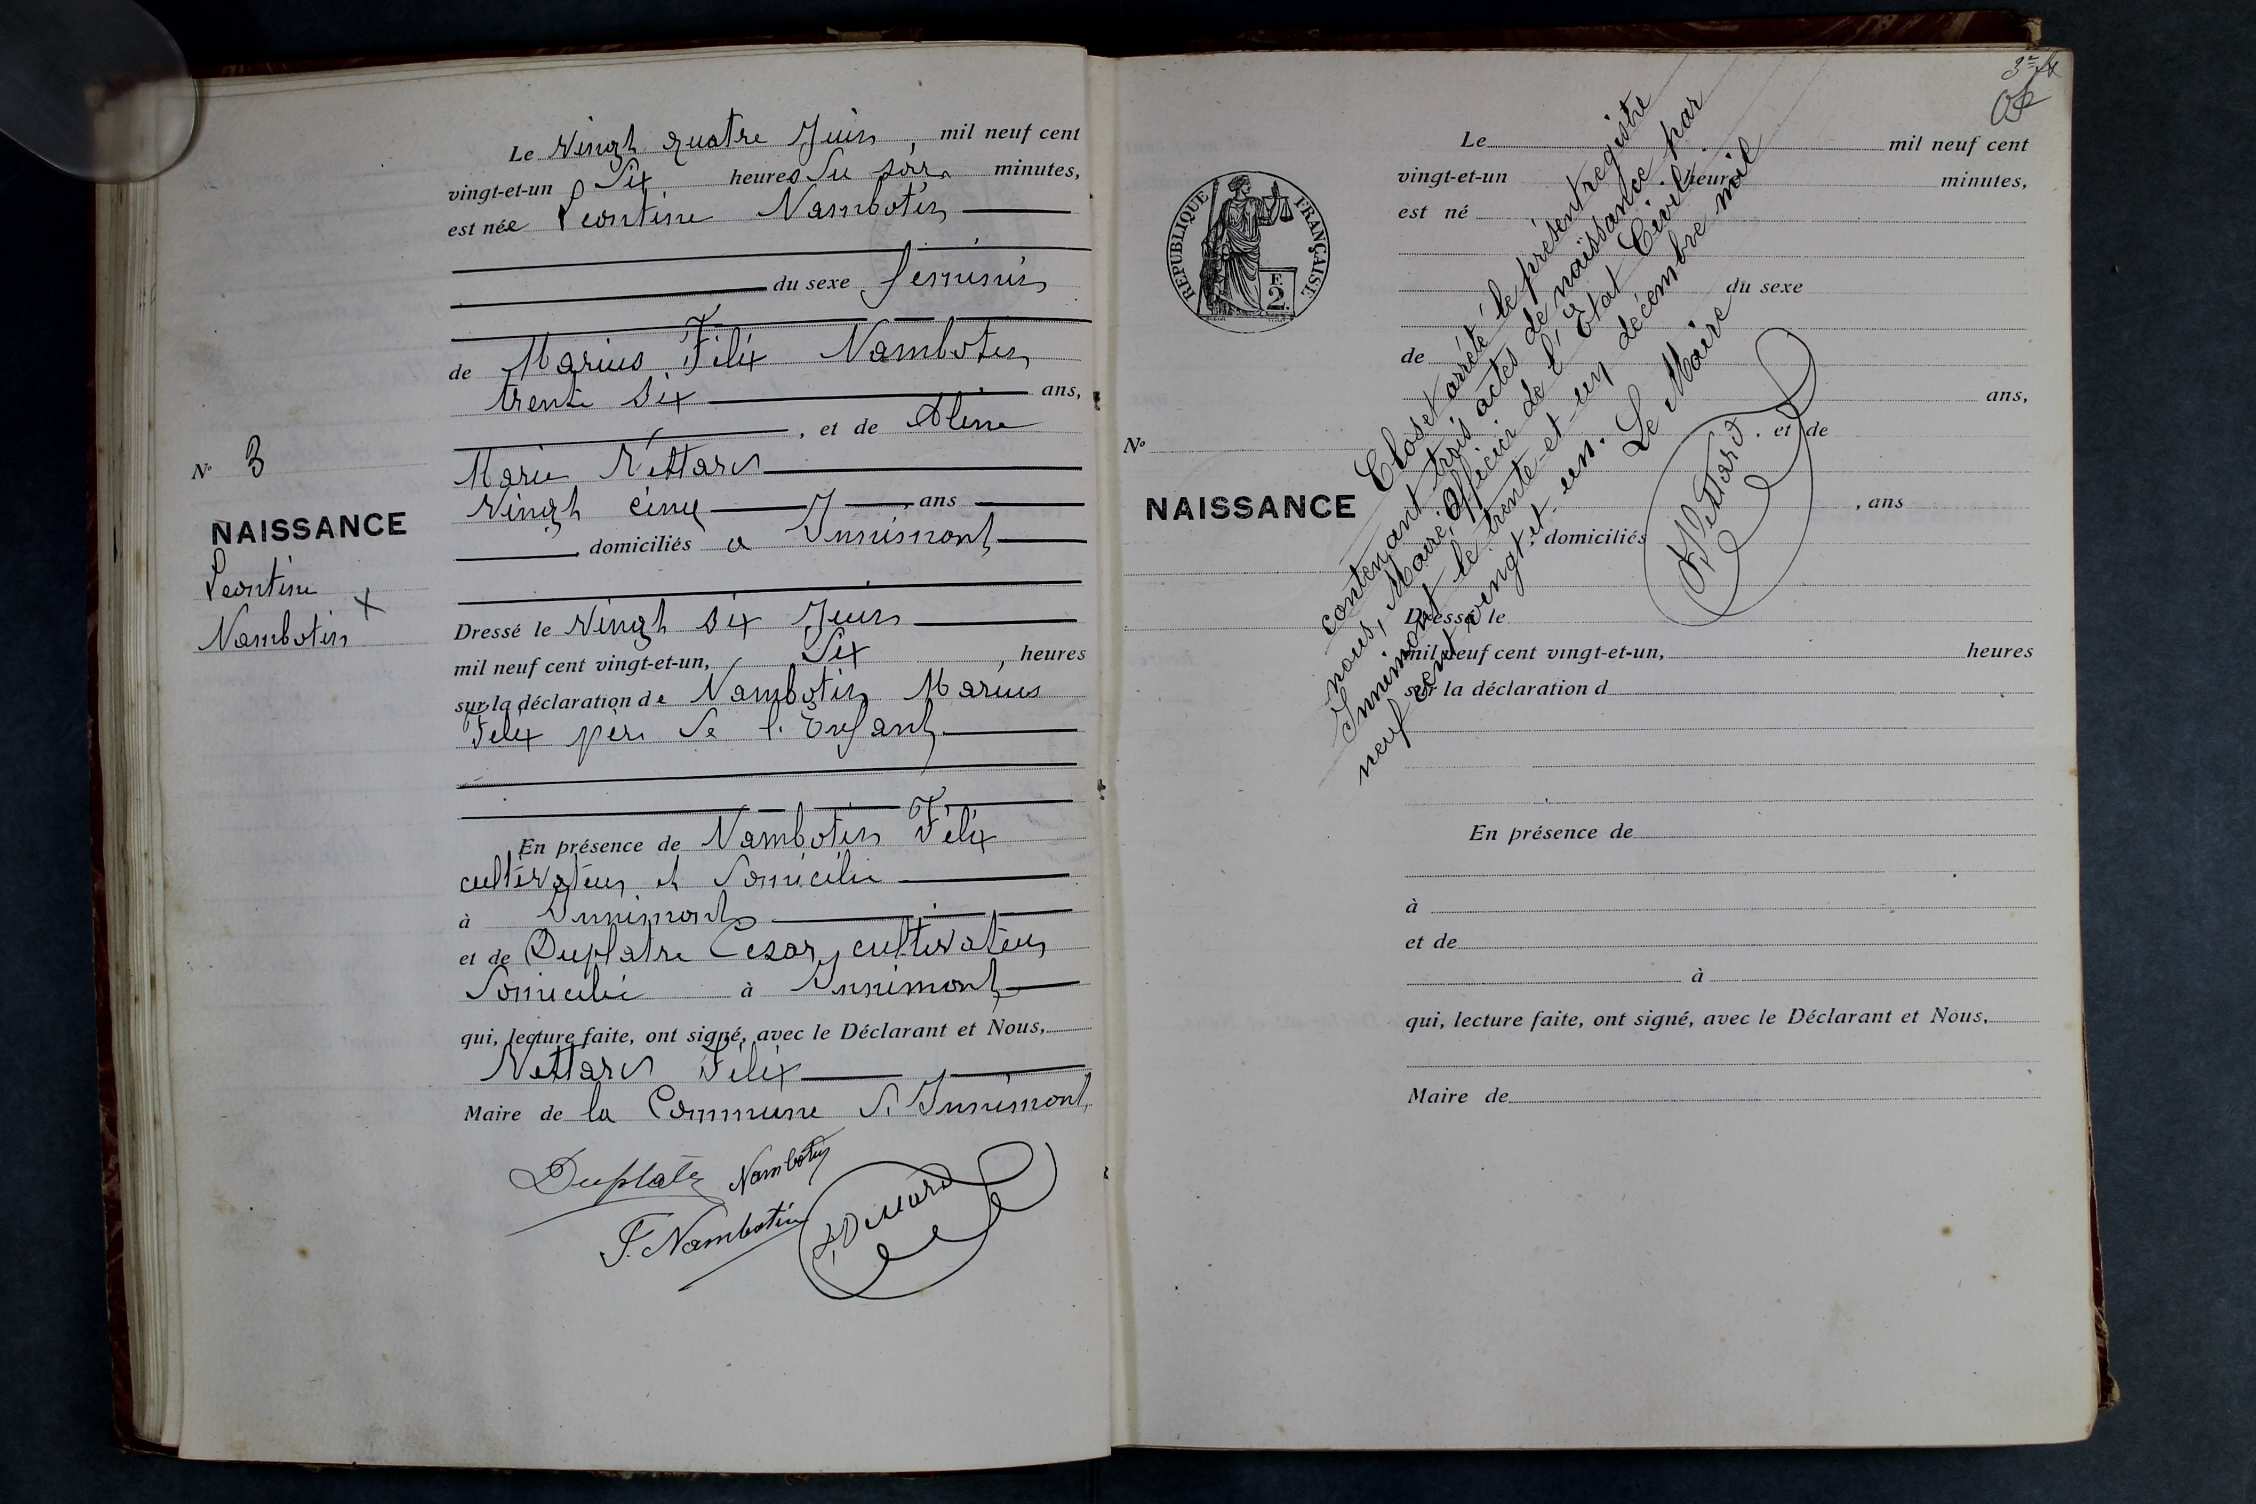 Le Vingt quatre Juin mil neuf cent
vingt-et-un Six heures du soir minutes,
est née Leontine Nambotin
du sexe feminin
de Marius Félix Nambotin
trente six ans,
, et de Aline
Marie Vettard
Vingt cinq ans
domiciliés a Innimont
N° 3
NAISSANCE
Leontine
Nambotin
Dressé le Vingt six Juin
mil neuf cent vingt-et-un, Six heures
sur la déclaration de Nambotin Marius
Felix père de l'Enfant
En présence de Nambotin Félix
cultivateur et Domicilié
à Innimont
et de Duplatre Cesar cultivateur
Domicilié à Innimont
qui, lecture faite, ont signé, avec le Déclarant et Nous,
Vettard Félix
Maire de la Commune d'Innimont
Duplatre Nambotin
F. Nambotin F. Vettard
RÉPUBLIQUE FRANÇAISE
F.
2
Le mil neuf cent
vingt-et-un heures minutes,
est né
du sexe
de
ans,
, et de
N°
NAISSANCE
, ans
, domiciliés
Dressé le
mil neuf cent vingt-et-un, heures
sur la déclaration d
En présence de
à
et de
à
qui, lecture faite, ont signé, avec le Déclarant et Nous,
Maire de
Clos et arrêté le présent registre
contenant trois actes de naissance par
nous, Maire, Officier de l'Etat Civil.
Innimont le trente et un décembre mil
neuf cent vingt et un. Le Maire
F. Vettard